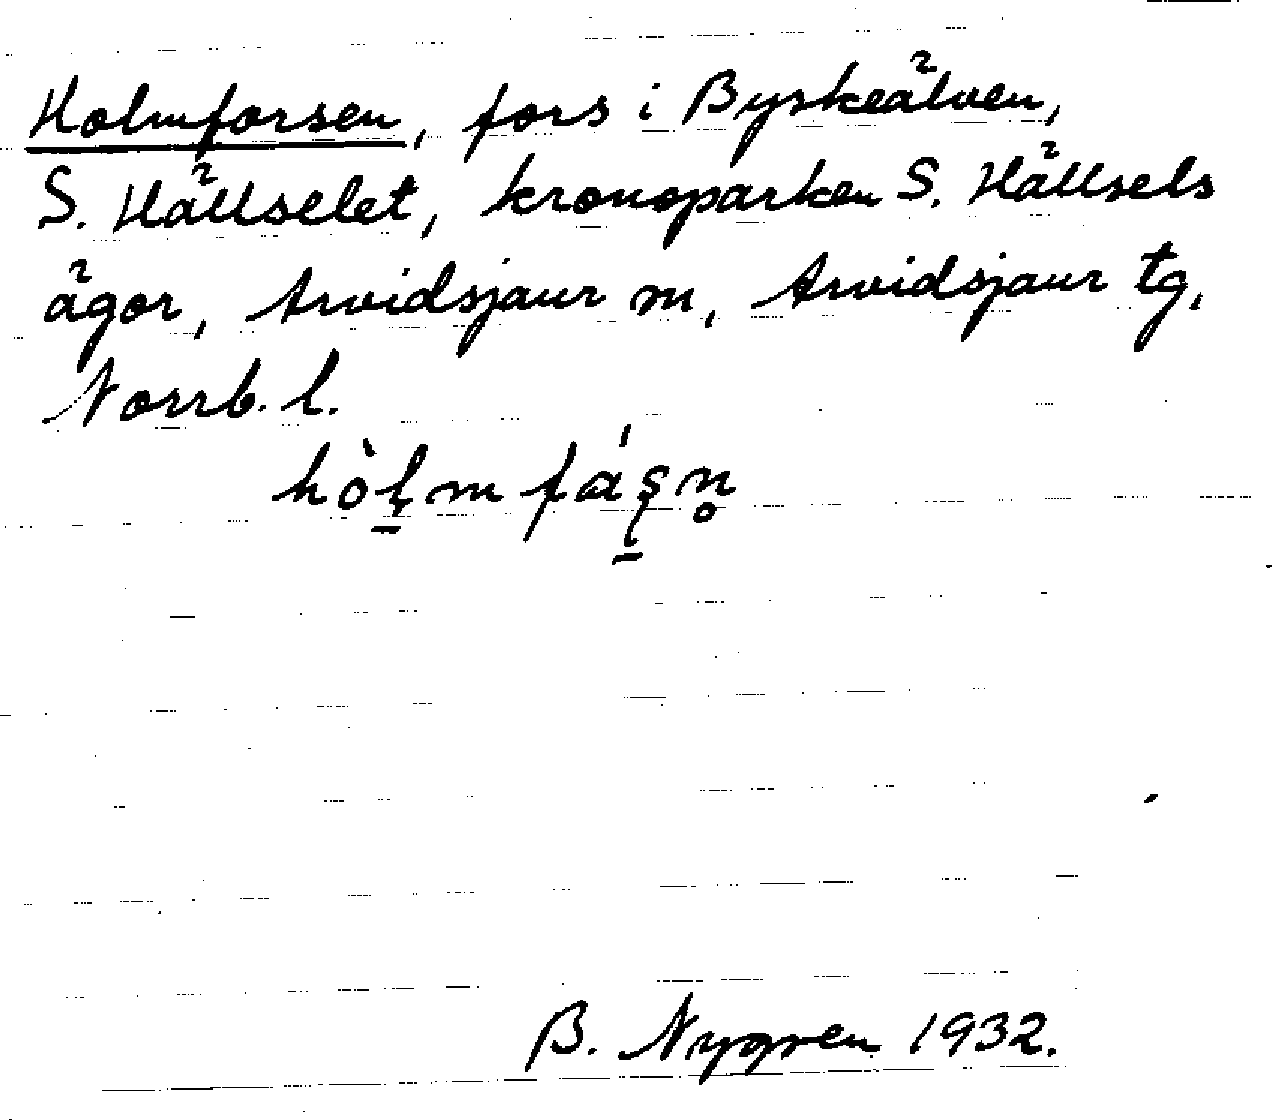 Holmforsen, fors i Byskeälven,
S. Hällselet, kronoparken S. Hällsels
ägor, Arvidsjaur m, Arvidsjaur tg,
Norrb. l.
B. Nygren 1932.